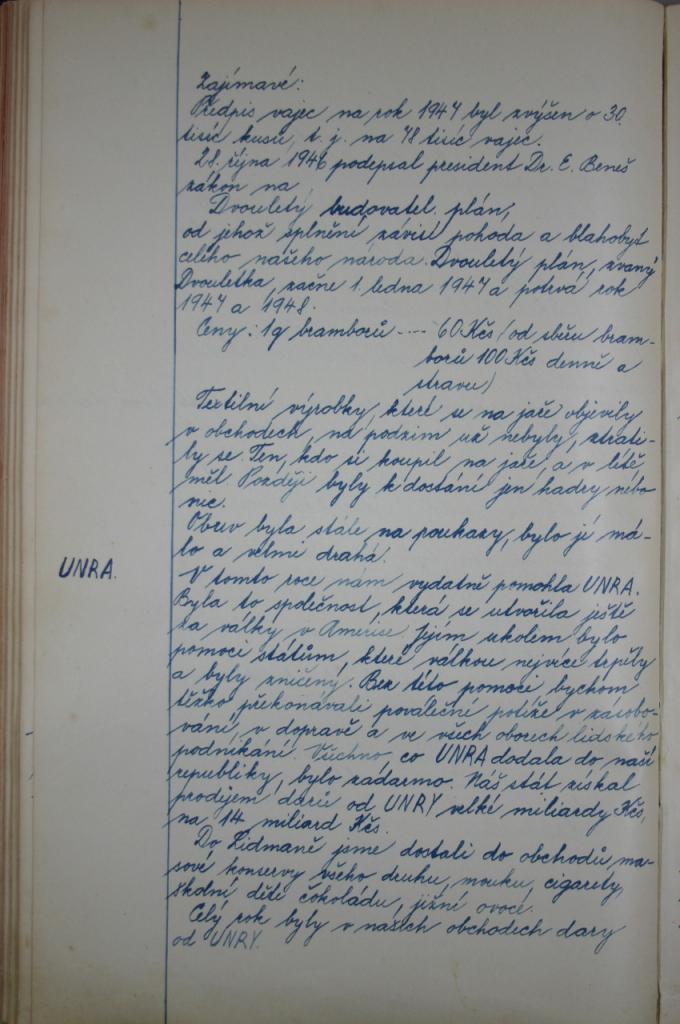 Zajímavé:
Předpis vajec na rok 1947 byl zvýšen o 30.
tisíc kusů, t. j. na 78 tisíc vajec.
28. října 1946 podepsal president Dr. E. Beneš
zákon na
Dvouletý budovatel. plán,
od jehož splnění závisí pohoda a blahobyt
celého našeho národa. Dvouletý plán, zvaný
Dvouletka, začne 1. ledna 1947 a potrvá rok
1947 a 1948.
Ceny: 1q bramborů ---- 60 Kčs (od sběru bram-
borů 100 Kčs denně a
stravu)
Textilní výrobky, které se na jaře objevily
v obchodech, na podzim už nebyly, ztrati-
ly se. Ten, kdo si koupil na jaře, a v létě,
měl. Později byly k dostání jen hadry nebo
nic.
Obuv byla stále na poukazy, bylo jí má-
lo a velmi drahá.
UNRA.
V tomto roce nám vydatně pomohla UNRA.
Byla to společnost, která se utvořila ještě
za války v Americe. Jejím úkolem bylo
pomoci státům, které válkou nejvíce trpěly
a byly zničeny. Bez této pomoci bychom
těžko překonávali poválečné potíže v zásobo-
vání, v dopravě a ve všech oborech lidského
podnikání. Všechno, co UNRA dodala do naší
republiky, bylo zadarmo. Náš stát získal
prodejem darů od UNRY velké miliardy Kčs,
na 14 miliard Kčs.
Do Lidmaně jsme dostali do obchodů ma-
sové konservy všeho druhu, mouku, cigarety,
školní děti čokoládu, jižní ovoce.
Celý rok byly v našich obchodech dary
od UNRY.